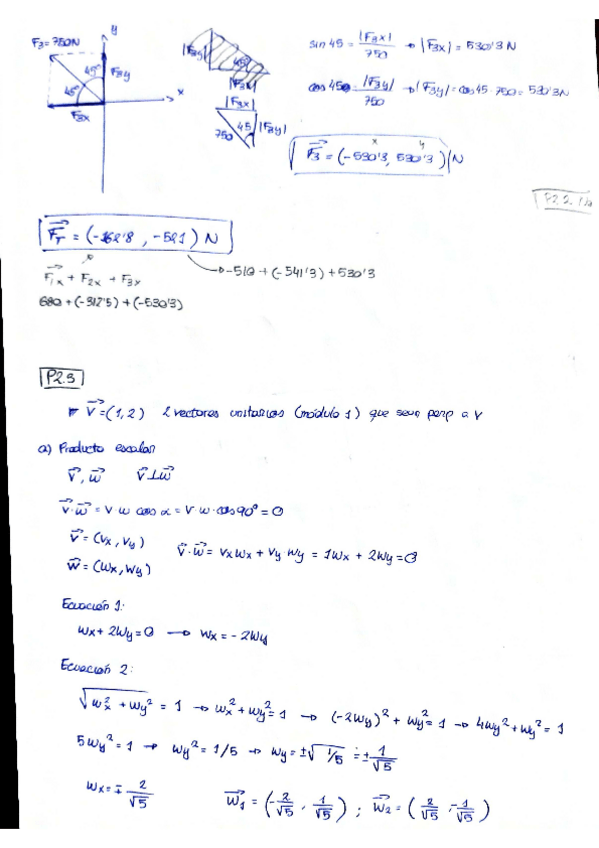 F3=750N
y
45°
F3y
45°
x
F3x
|F3y|
45°
|F3x|
|F3x|
750
45
|F3y|
sin 45 = |F3x| / 750 → |F3x| = 530'3 N
cos 45 = |F3y| / 750 → |F3y| = cos 45 · 750 = 530'3 N
x y
F3 = (-530'3, 530'3) N
P2.2.
FT = (-162'8, -521) N
→ -510 + (-541'3) + 530'3
F1x + F2x + F3x
680 + (-312'5) + (-530'3)
P2.3
V = (1,2) 2 vectores unitarios (módulo 1) que sean perp a v
a) Producto escalar
v, w v⊥w
v·w = v w cos α = v w · cos 90° = 0
v = (vx, vy)
v·w = vx wx + vy · wy = 1wx + 2wy = 0
w = (wx, wy)
Ecuación 1:
wx + 2wy = 0 → wx = -2wy
Ecuación 2:
√(wx² + wy²) = 1 → wx² + wy² = 1 → (-2wy)² + wy² = 1 → 4wy² + wy² = 1
5wy² = 1 → wy² = 1/5 → wy = ±√(1/5) = ± 1/√5
wx = ∓ 2/√5 w1 = (-2/√5, 1/√5) ; w2 = (2/√5, -1/√5)